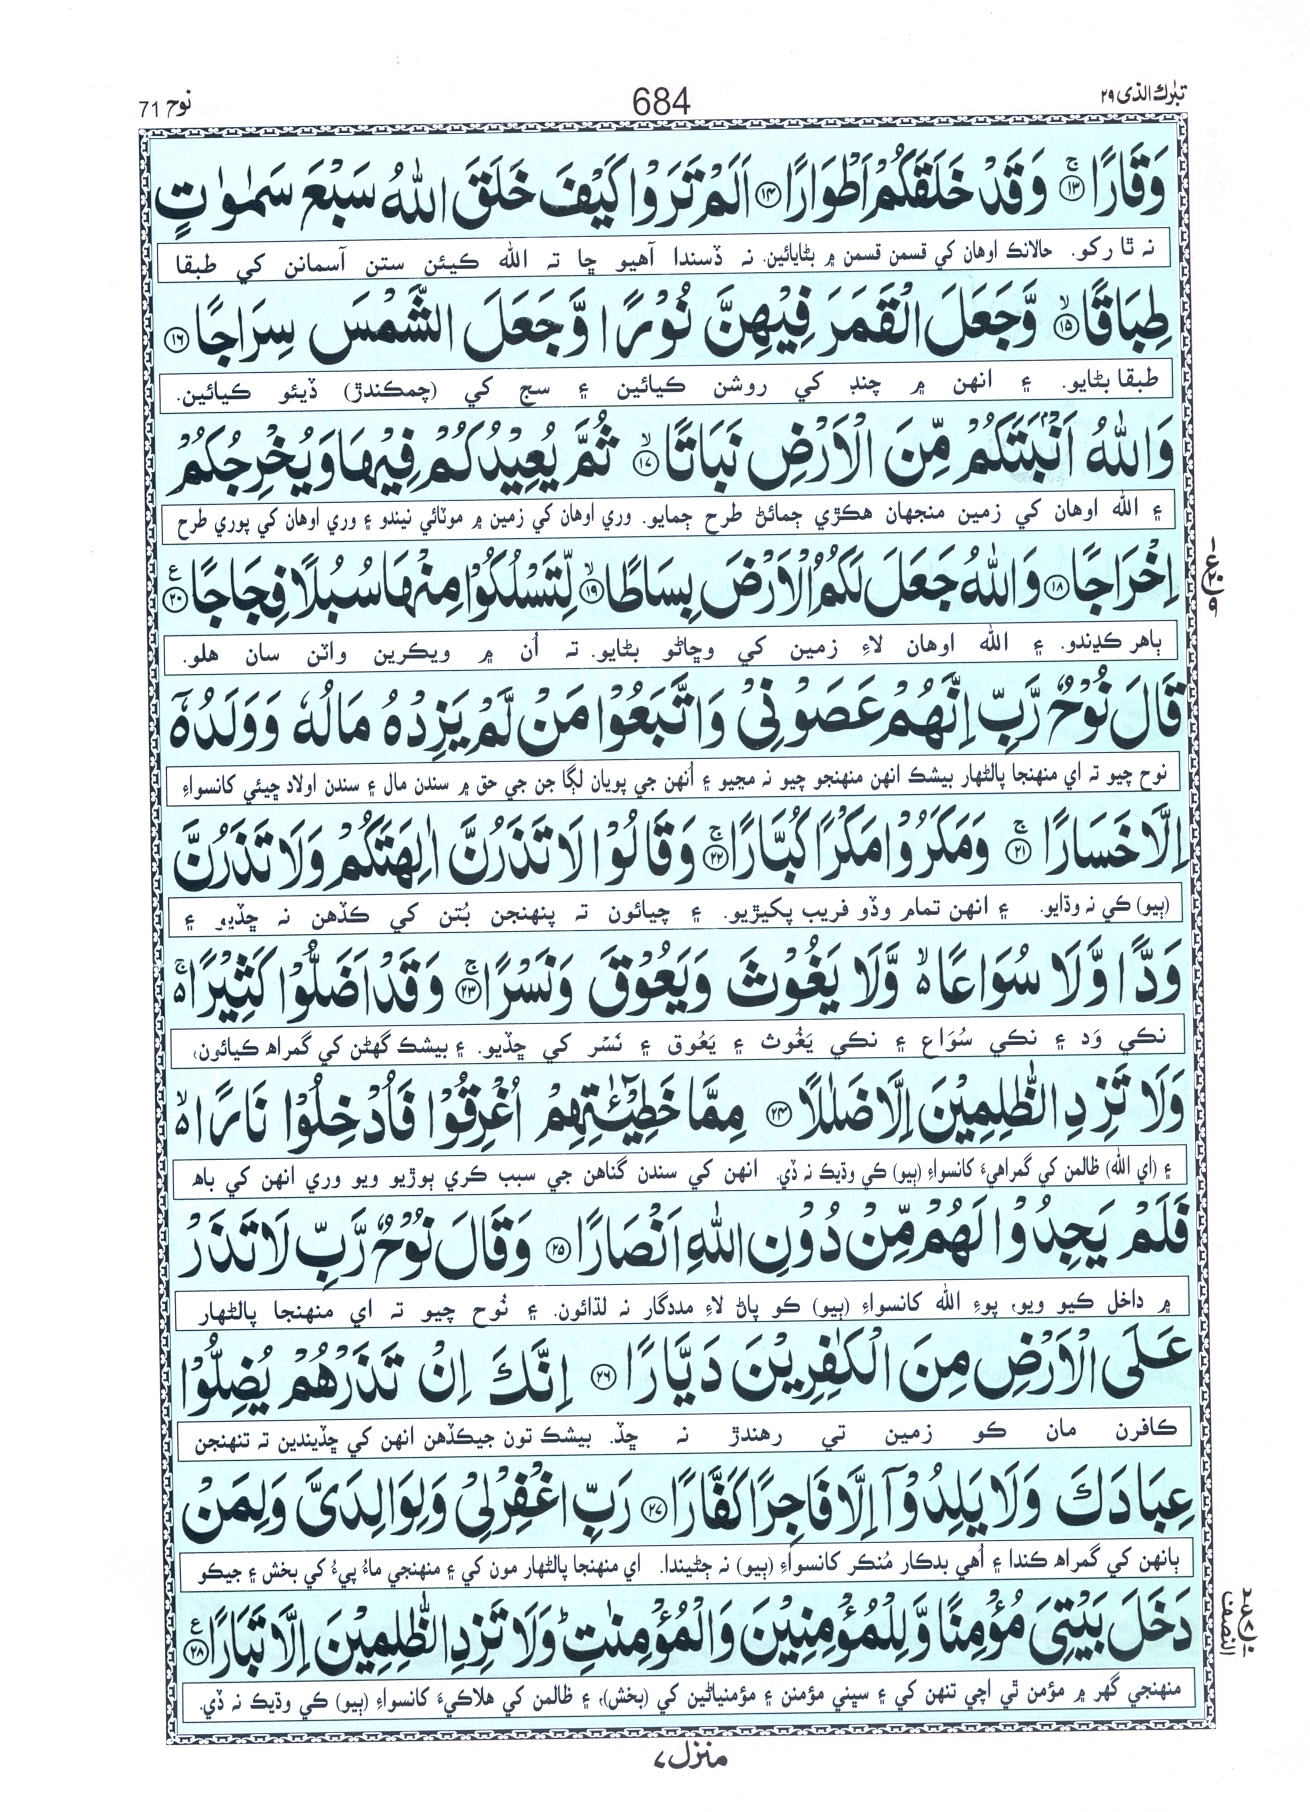 تبٰرك الذى ٢٩
684
نوح 71
وَقَارًا ۚ‏﴿١٣﴾ وَقَدْ خَلَقَكُمْ اَطْوَارًا ﴿١٤﴾ اَلَمْ تَرَوْا كَيْفَ خَلَقَ اللّٰهُ سَبْعَ سَمٰوٰتٍ
نہ ٿا رکو. حالانڪ اوھان کي قسمن قسمن ۾ بڻايائين. نہ ڏسندا آھيو ڇا تہ اللہ ڪيئن ستن آسمانن کي طبقا
طِبَاقًا ۙ‏﴿١٥﴾ وَّجَعَلَ الْقَمَرَ فِيْهِنَّ نُوْرًا وَّجَعَلَ الشَّمْسَ سِرَاجًا ﴿١٦﴾
طبقا بڻايو. ۽ انھن ۾ چنڊ کي روشن ڪيائين ۽ سج کي (چمڪندڙ) ڏيئو ڪيائين.
وَاللّٰهُ اَنْۢبَتَكُمْ مِّنَ الْاَرْضِ نَبَاتًا ۙ‏﴿١٧﴾ ثُمَّ يُعِيْدُكُمْ فِيْهَا وَيُخْرِجُكُمْ
۽ اللہ اوھان کي زمين منجهان ھڪڙي ڄمائڻ طرح ڄمايو. وري اوھان کي زمين ۾ موٽائي نيندو ۽ وري اوھان کي پوري طرح
اِخْرَاجًا ﴿١٨﴾ وَاللّٰهُ جَعَلَ لَكُمُ الْاَرْضَ بِسَاطًا ۙ‏﴿١٩﴾ لِّتَسْلُكُوْا مِنْهَا سُبُلًا فِجَاجًا ‏﴿٢٠﴾ ع
ٻاھر ڪڍندو. ۽ اللہ اوھان لاءِ زمين کي وڇاڻو بڻايو. تہ اُن ۾ ويڪرين واٽن سان ھلو.
قَالَ نُوْحٌ رَّبِّ اِنَّهُمْ عَصَوْنِىْ وَاتَّبَعُوْا مَنْ لَّمْ يَزِدْهُ مَالُهٗ وَوَلَدُهٗۤ
نوح چيو تہ اي منھنجا پالڻھار بيشڪ انھن منھنجو چيو نہ مڃيو ۽ اُنھن جي پويان لڳا جن جي حق ۾ سندن مال ۽ سندن اولاد ڇيئي کانسواءِ
اِلَّا خَسَارًا ۚ‏﴿٢١﴾ وَمَكَرُوْا مَكْرًا كُبَّارًا ۚ‏﴿٢٢﴾ وَقَالُوْا لَا تَذَرُنَّ اٰلِهَتَكُمْ وَلَا تَذَرُنَّ
(ٻيو) کي نہ وڌايو. ۽ انھن تمام وڏو فريب پکيڙيو. ۽ چيائون تہ پنھنجن بُتن کي ڪڏھن نہ ڇڏيو ۽
وَدًّا وَّلَا سُوَاعًا ۙ وَّلَا يَغُوْثَ وَيَعُوْقَ وَنَسْرًا ۚ‏﴿٢٣﴾ وَقَدْ اَضَلُّوْا كَثِيْرًا ۚ
نڪي وَد ۽ نڪي سُوَاع ۽ نڪي يَغُوث ۽ يَعُوق ۽ نَسْر کي ڇڏيو. ۽ بيشڪ گھڻن کي گمراھ ڪيائون،
وَلَا تَزِدِ الظّٰلِمِيْنَ اِلَّا ضَلٰلًا ﴿٢٤﴾ مِمَّا خَطِيْٓئٰتِهِمْ اُغْرِقُوْا فَاُدْخِلُوْا نَارًا ۙ
۽ (اي اللہ) ظالمن کي گمراھيءَ کانسواءِ (ٻيو) ڪي وڌيڪ نہ ڏي. انھن کي سندن گناھن جي سبب ڪري ٻوڙيو ويو وري انھن کي باھ
فَلَمْ يَجِدُوْا لَهُمْ مِّنْ دُوْنِ اللّٰهِ اَنْصَارًا ﴿٢٥﴾ وَقَالَ نُوْحٌ رَّبِّ لَا تَذَرْ
۾ داخل ڪيو ويو، پوءِ اللہ کانسواءِ (ٻيو) ڪو پاڻ لاءِ مددگار نہ لڌائون. ۽ نُوح چيو تہ اي منھنجا پالڻھار
عَلَى الْاَرْضِ مِنَ الْكٰفِرِيْنَ دَيَّارًا ﴿٢٦﴾ اِنَّكَ اِنْ تَذَرْهُمْ يُضِلُّوْا
ڪافرن مان ڪو زمين تي رھندڙ نہ ڇڏ. بيشڪ تون جيڪڏھن انھن کي ڇڏيندين تہ تنھنجن
عِبَادَكَ وَلَا يَلِدُوْۤا اِلَّا فَاجِرًا كَفَّارًا ﴿٢٧﴾ رَبِّ اغْفِرْلِىْ وَلِوَالِدَىَّ وَلِمَنْ
ٻانھن کي گمراھ ڪندا ۽ اُھي بدڪار مُنڪر کانسواءِ (ٻيو) نہ ڄڻيندا. اي منھنجا پالڻھار مون کي ۽ منھنجي ماءُ پيءُ کي بخش ۽ جيڪو
دَخَلَ بَيْتِىَ مُؤْمِنًا وَّلِلْمُؤْمِنِيْنَ وَالْمُؤْمِنٰتِ ؕ وَلَا تَزِدِ الظّٰلِمِيْنَ اِلَّا تَبَارًا ‏﴿٢٨﴾ ع
منھنجي گھر ۾ مؤمن ٿي اچي تنھن کي ۽ سڀني مؤمنن ۽ مؤمنياڻين کي (بخش)، ۽ ظالمن کي ھلاڪيءَ کانسواءِ (ٻيو) ڪي وڌيڪ نہ ڏي.
منزل ٧